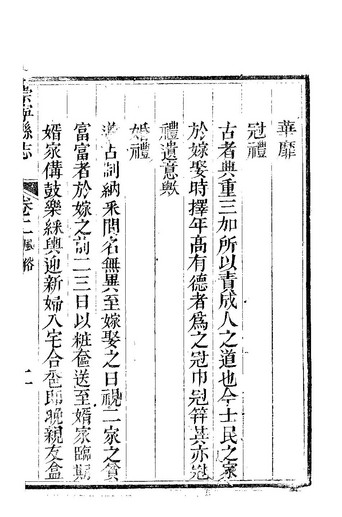 華靡
冠禮
古者典重三加所以責成人之道也今士民之家
於嫁娶時擇年高有德者為之冠巾冠笄其亦冠
禮遺意歟
婚禮
遵古制納采問名無異至嫁娶之日視二家之貧
富富者於嫁之前二三日以粧奩送至婿家臨期
婿家備鼓樂綵輿迎新婦入宅合巹即晚親友盒
崇寧縣志 卷二 風俗 二